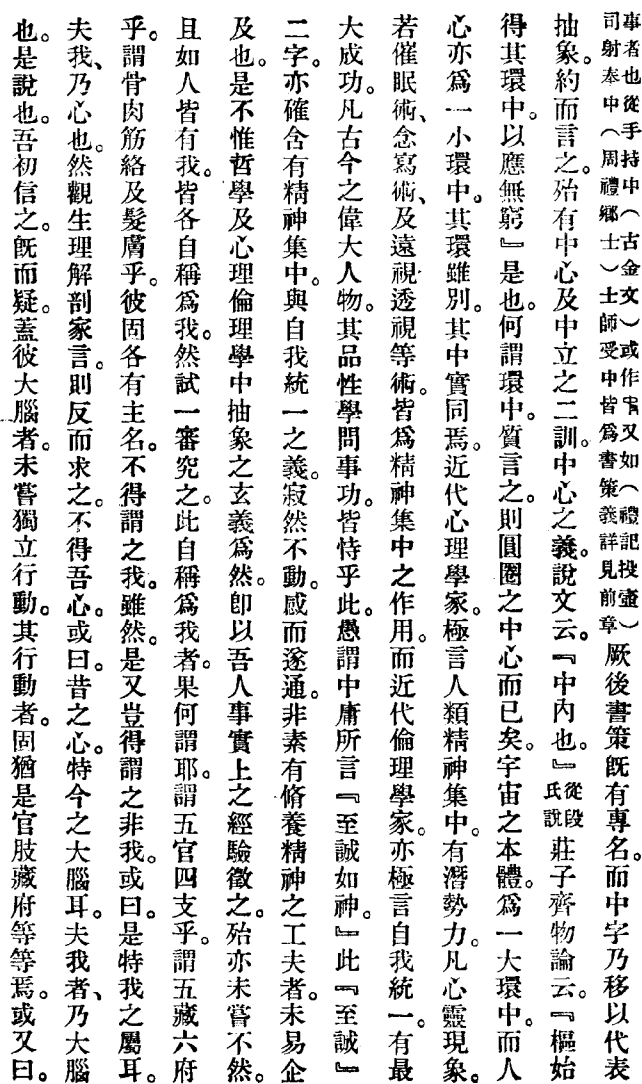 事者也從手持中（古金文）或作𠁩又如（禮記投壺）
司射奉中（周禮鄉士）士師受中皆爲書策義詳見前章
厥後書策旣有專名。而中字乃移以代表
抽象。約而言之。殆有中心及中立之二訓。中心之義。說文云。『中內也。』從段氏說莊子齊物論云。『樞始
得其環中。以應無窮』是也。何謂環中。質言之。則圓圈之中心而已矣。宇宙之本體。爲一大環中。而人
心亦爲一小環中。其環雖別。其中實同焉。近代心理學家。極言人類精神集中。有潛勢力。凡心靈現象。
若催眠術、念寫術、及遠視透視等術。皆爲精神集中之作用。而近代倫理學家。亦極言自我統一。有最
大成功。凡古今之偉大人物。其品性學問事功。皆恃乎此。愚謂中庸所言『至誠如神。』此『至誠』
二字。亦確含有精神集中。與自我統一之義。寂然不動。感而遂通。非素有脩養精神之工夫者。未易企
及也。是不惟哲學及心理倫理學中抽象之玄義爲然。卽以吾人事實上之經驗徵之。殆亦未嘗不然。
且如人皆有我。皆各自稱爲我。然試一審究之。此自稱爲我者。果何謂耶。謂五官四支乎。謂五藏六府
乎。謂骨肉筋絡及髮膚乎。彼固各有主名。不得謂之我。雖然。是又豈得謂之非我。或曰。是特我之屬耳。
夫我、乃心也。然觀生理解剖家言。則反而求之。不得吾心。或曰。昔之心。特今之大腦耳。夫我者、乃大腦
也。是說也。吾初信之。旣而疑。蓋彼大腦者。未嘗獨立行動。其行動者。固猶是官肢藏府等等焉。或又曰。